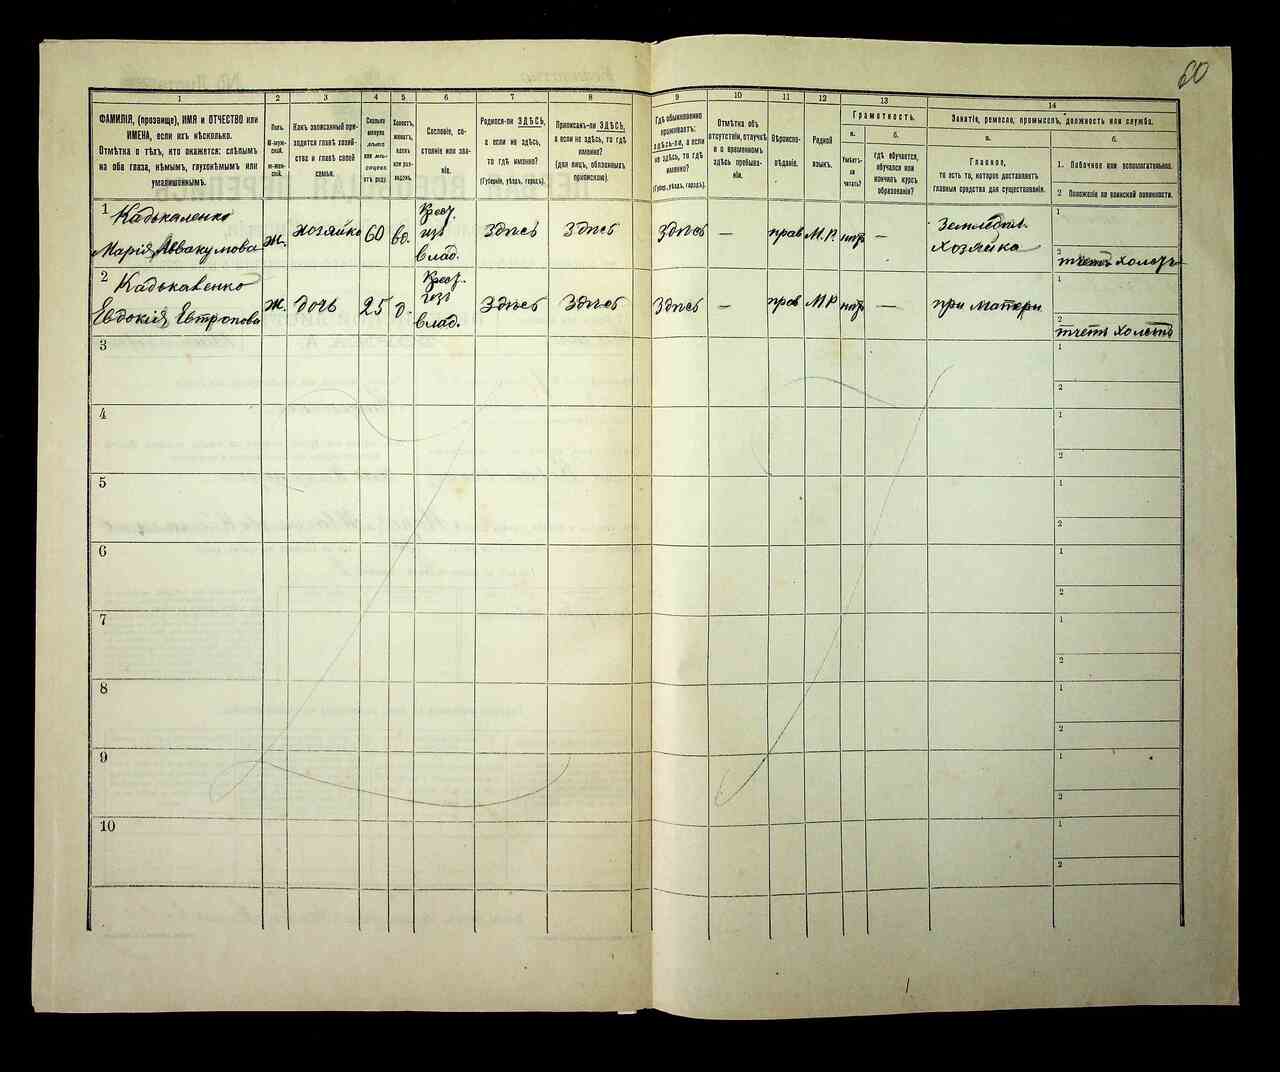 60
1
2
3
4
5
6
7
8
9
10
11
12
13
14
ФАМИЛІЯ, (прозвище), ИМЯ и ОТЧЕСТВО или
ИМЕНА, если ихъ нѣсколько.
Отмѣтка о тѣхъ, кто окажется: слѣпымъ
на оба глаза, нѣмымъ, глухонѣмымъ или
умалишеннымъ.
Полъ.
М-муж-
ской.
ж-жен-
скій.
Какъ записанный при-
ходится главѣ хозяй-
ства и главѣ своей
семьи.
Сколько
минуло
лѣтъ
или мѣ-
сяцевъ
отъ роду.
Холостъ,
женатъ,
вдовъ
или раз-
веденъ.
Сословіе, со-
стояніе или зва-
ніе.
Родился-ли ЗДѢСЬ,
а если не здѣсь,
то гдѣ именно?
(Губернія, уѣздъ, городъ).
Приписанъ-ли ЗДѢСЬ,
а если не здѣсь, то гдѣ
именно?
(для лицъ, обязанныхъ
припискою).
Гдѣ обыкновенно
проживаетъ:
здѣсь-ли, а если
не здѣсь, то гдѣ
именно?
(Губернія, уѣздъ, городъ).
Отмѣтка объ
отсутствіи, отлучкѣ
и о временномъ
здѣсь пребыва-
ніи.
Вѣроиспо-
вѣданіе.
Родной
языкъ.
Грамотность.
а.
Умѣетъ-
ли
читать?
б.
гдѣ обучается,
обучался или
кончилъ курсъ
образованія?
Занятіе, ремесло, промыселъ, должность или служба.
а.
Главное,
то есть то, которое доставляетъ
главныя средства для существованія.
б.
1. Побочное или вспомогательное.
2 Положеніе по воинской повинности.
1 Кадькаленко
Марія Аввакумова ж. хозяйка 60 вд. Крест. изъ влад. Здѣсь Здѣсь Здѣсь — прав М.Р. нѣтъ — Земледѣл. Хозяйка
1
2
2 Кадькаленко
Евдокія Евтропова ж. дочь 25 д. Крест. изъ влад. Здѣсь Здѣсь Здѣсь — прав М.Р. нѣтъ — при матери
1
2
3
1
2
4
1
2
5
1
2
6
1
2
7
1
2
8
1
2
9
1
2
10
1
2